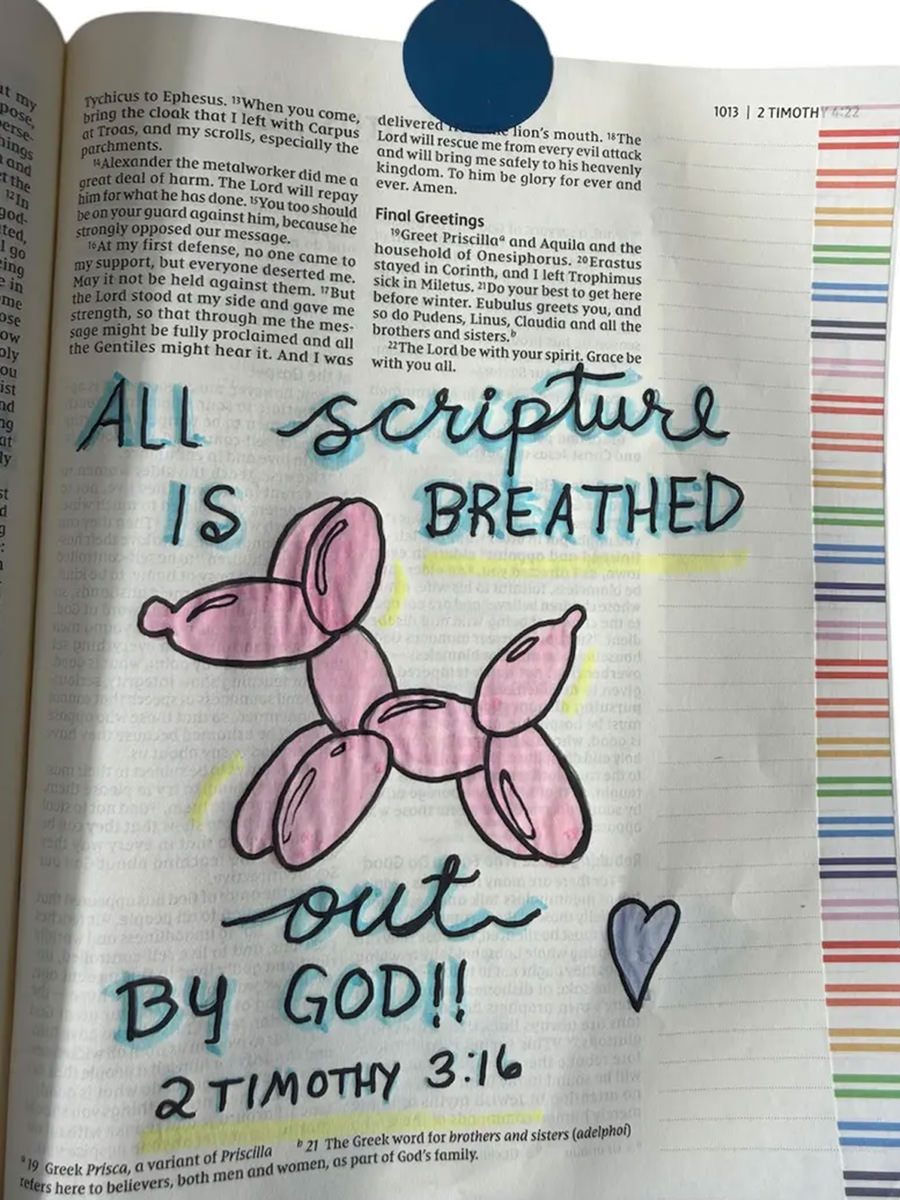 1013 | 2 TIMOTHY 4:22
Tychicus to Ephesus. ¹³When you come,
bring the cloak that I left with Carpus
at Troas, and my scrolls, especially the
parchments.
¹⁴Alexander the metalworker did me a
great deal of harm. The Lord will repay
him for what he has done. ¹⁵You too should
be on your guard against him, because he
strongly opposed our message.
¹⁶At my first defense, no one came to
my support, but everyone deserted me.
May it not be held against them. ¹⁷But
the Lord stood at my side and gave me
strength, so that through me the mes-
sage might be fully proclaimed and all
the Gentiles might hear it. And I was
delivered lion's mouth. ¹⁸The
Lord will rescue me from every evil attack
and will bring me safely to his heavenly
kingdom. To him be glory for ever and
ever. Amen.
Final Greetings
¹⁹Greet Priscillaᵃ and Aquila and the
household of Onesiphorus. ²⁰Erastus
stayed in Corinth, and I left Trophimus
sick in Miletus. ²¹Do your best to get here
before winter. Eubulus greets you, and
so do Pudens, Linus, Claudia and all the
brothers and sisters.ᵇ
²²The Lord be with your spirit. Grace be
with you all.
ALL scripture
IS BREATHED
out
BY GOD!!
2 TIMOTHY 3:16
ᵃ19 Greek Prisca, a variant of Priscilla ᵇ21 The Greek word for brothers and sisters (adelphoi)
refers here to believers, both men and women, as part of God's family.